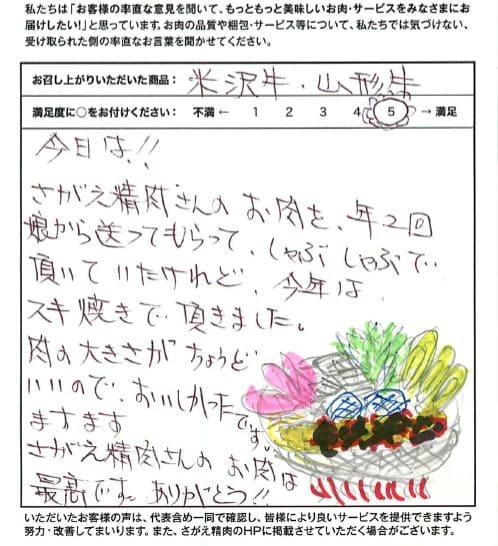 私たちは「お客様の率直な意見を聞いて、もっともっと美味しいお肉・サービスをみなさまにお
届けしたい!」と思っています。お肉の品質や梱包・サービス等について、私たちでは気づけない、
受け取られた側の率直なお言葉を聞かせてください。
お召し上がりいただいた商品: 米沢牛・山形牛
満足度に○をお付けください: 不満 ← 1 2 3 4 5 → 満足
今日は!!
さがえ精肉さんの お肉を、年2回
娘から送ってもらって、しゃぶしゃぶで
頂いて いたけれど、今年は
スキ焼きで 頂きました。
肉の大きさが ちょうど
いいので、おいしかった
です。
ますます
さがえ精肉さんの お肉は
最高です。ありがとう!!
いただいたお客様の声は、代表含め一同で確認し、皆様により良いサービスを提供できますよう
努力・改善してまいります。また、さがえ精肉のHPに掲載させていただく場合がございます。